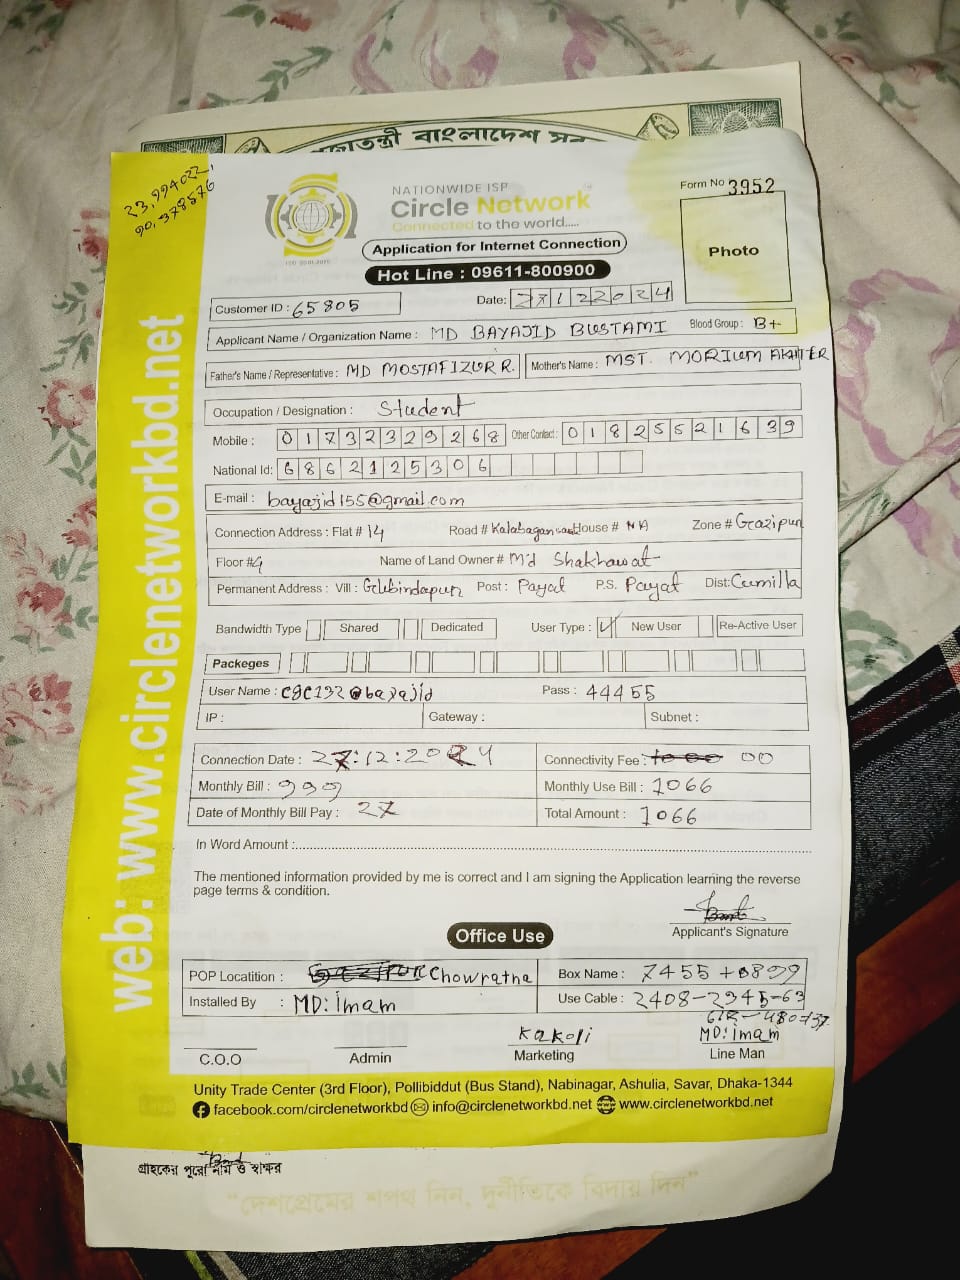 জাতন্ত্রী বাংলাদেশ সর
23,994022,
90,378576
NATIONWIDE ISP
Circle Network
Connected to the world.....
Application for Internet Connection
Hot Line : 09611-800900
Form No 3952
Photo
Customer ID : 65805
Date: 27122024
Applicant Name / Organization Name : MD BAYAJID BUSTAMI Blood Group : B+
Father's Name / Representative : MD MOSTAFIZUR R. Mother's Name : MST. MORIUM AKHTER
Occupation / Designation : Student
Mobile : 01732329268 Other Contact : 01825521639
National Id: 6862125306
E-mail : bayajid155@gmail.com
Connection Address : Flat # 14 Road # Kalabagan House # NA Zone # Gazipur
Floor #4 Name of Land Owner # Md Shakhawat
Permanent Address : Vill : Gubindapur Post : Payat P.S. Payat Dist: Cumilla
Bandwidth Type Shared Dedicated User Type : ✓ New User Re-Active User
Packeges
User Name : cgc132@bayajid Pass : 44455
IP : Gateway : Subnet :
Connection Date : 27:12:2024 Connectivity Fee : 00
Monthly Bill : 999 Monthly Use Bill : 1066
Date of Monthly Bill Pay : 27 Total Amount : 1066
In Word Amount :
The mentioned information provided by me is correct and I am signing the Application learning the reverse
page terms & condition.
Applicant's Signature
Office Use
POP Locatition : Chowratna Box Name : 7455+0899
Installed By : MD: imam Use Cable : 2408-2945-63
CIR-480737
Kakoli MD: imam
C.O.O Admin Marketing Line Man
Unity Trade Center (3rd Floor), Pollibiddut (Bus Stand), Nabinagar, Ashulia, Savar, Dhaka-1344
facebook.com/circlenetworkbd info@circlenetworkbd.net www.circlenetworkbd.net
web: www.circlenetworkbd.net
গ্রাহকের পুরো নাম ও স্বাক্ষর
“দেশপ্রেমের শপথ নিন, দুর্নীতিকে বিদায় দিন”